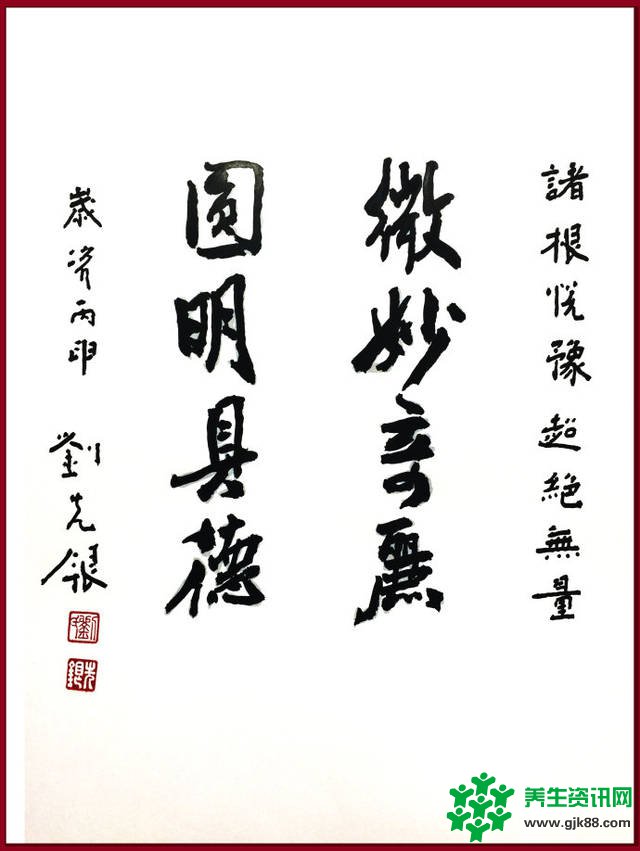 諸根悅豫超絕無量
微妙奇麗
圓明具德
歲次丙申
劉先銀
先銀
养生资讯网
www.gjk88.com